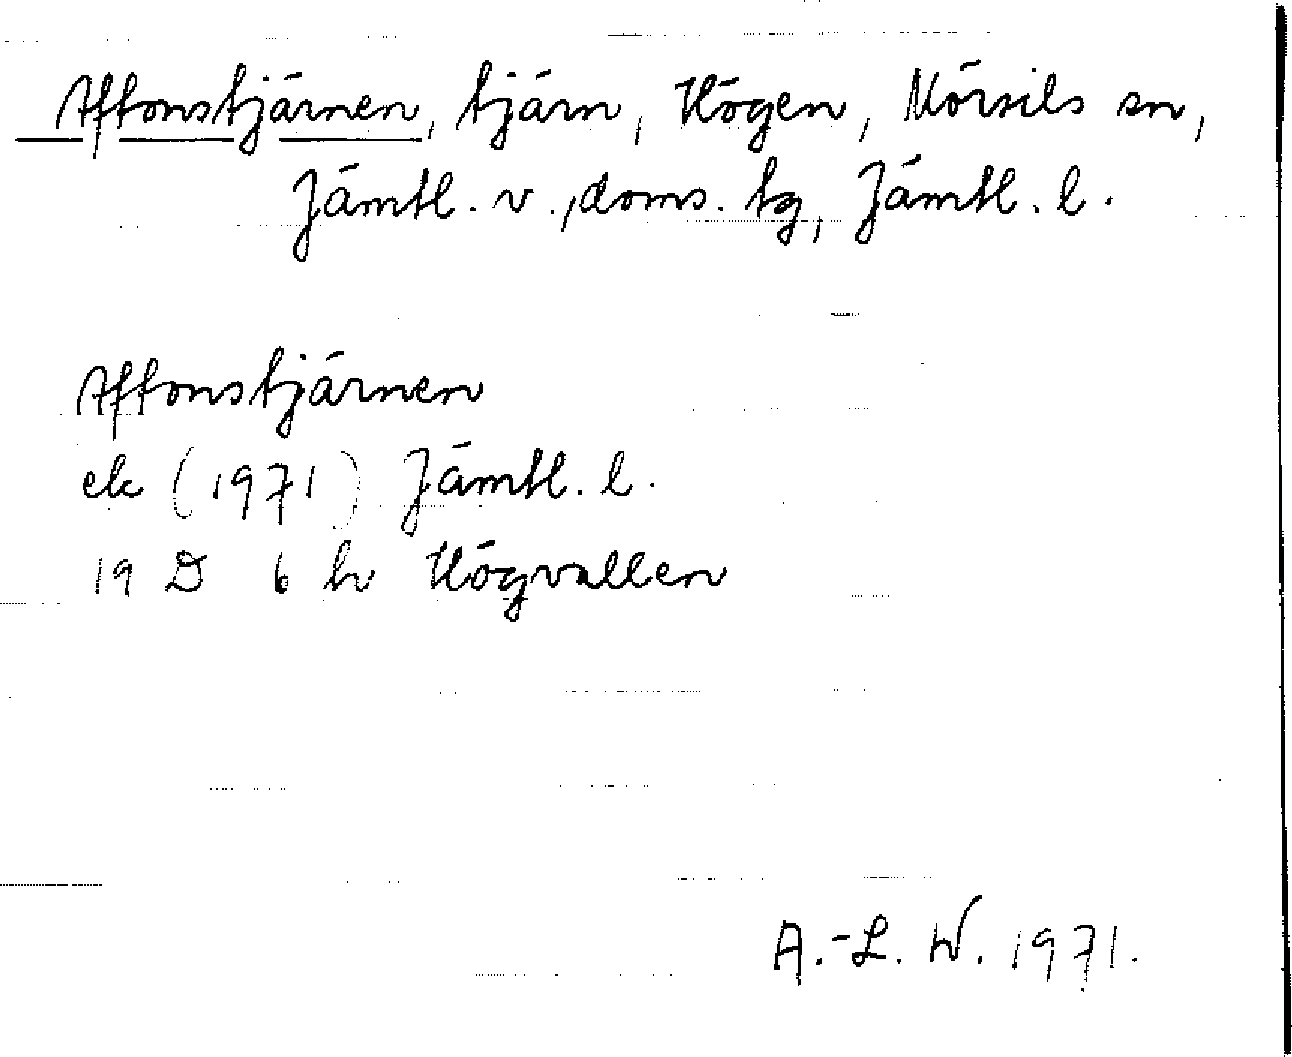 Aftonstjärnen, tjärn, Högen, Mörsils sn,
Jämtl. v., doms. tg, Jämtl. l.
Aftonstjärnen
ek (1971) Jämtl. l.
19 D 6 h Högvallen
A.-L. W. 1971.